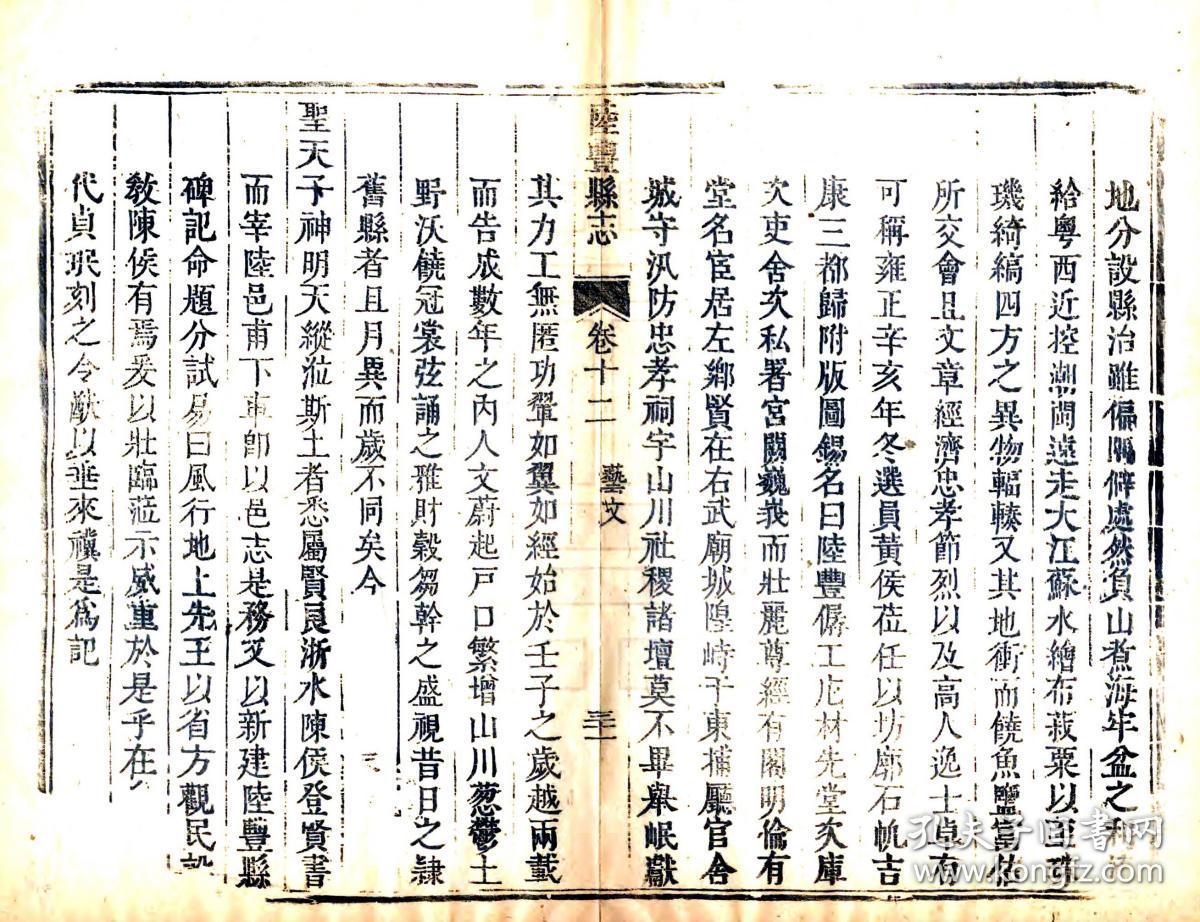 地分設縣治雖偏隅僻處然負山煮海牢盆之利
給粵西近控潮閩遠走大江蘇水繒布菽粟以至珠
璣綺縞四方之異物輻輳又其地衝而饒魚鹽富估
所交會且文章經濟忠孝節烈以及高人逸士卓有
可稱雍正辛亥年冬選員黃侯莅任以坊廓石帆吉
康三都歸附版圖錫名曰陸豐僝工庀材先堂次庫
次吏舍次私署宮闕巍峩而壯麗尊經有閣明倫有
堂名宦居左鄉賢在右武廟城隍峙于東捕廳官舍
城守汛防忠孝祠宇山川社稷諸壇莫不畢舉岷獻
陸豐縣志 卷十二 藝文
其力工無匿功翬如翼如經始於壬子之歲越兩載
而告成數年之內人文蔚起戸口繁增山川葱鬱土
野沃饒冠裳弦誦之雅財穀芻幹之盛視昔日之隷
舊縣者且月異而歲不同矣今
聖天子神明天縱涖斯土者悉屬賢良浙水陳侯登賢書
而宰陸邑甫下車卽以邑志是務爰以新建陸豐縣
碑記命題分試易曰風行地上先王以省方觀民設
敎陳侯有焉爰以壯臨蒞示威重於是乎在
代貞珉刻之令猷以垂來禩是爲記
孔夫子旧书网
www.kongfz.com